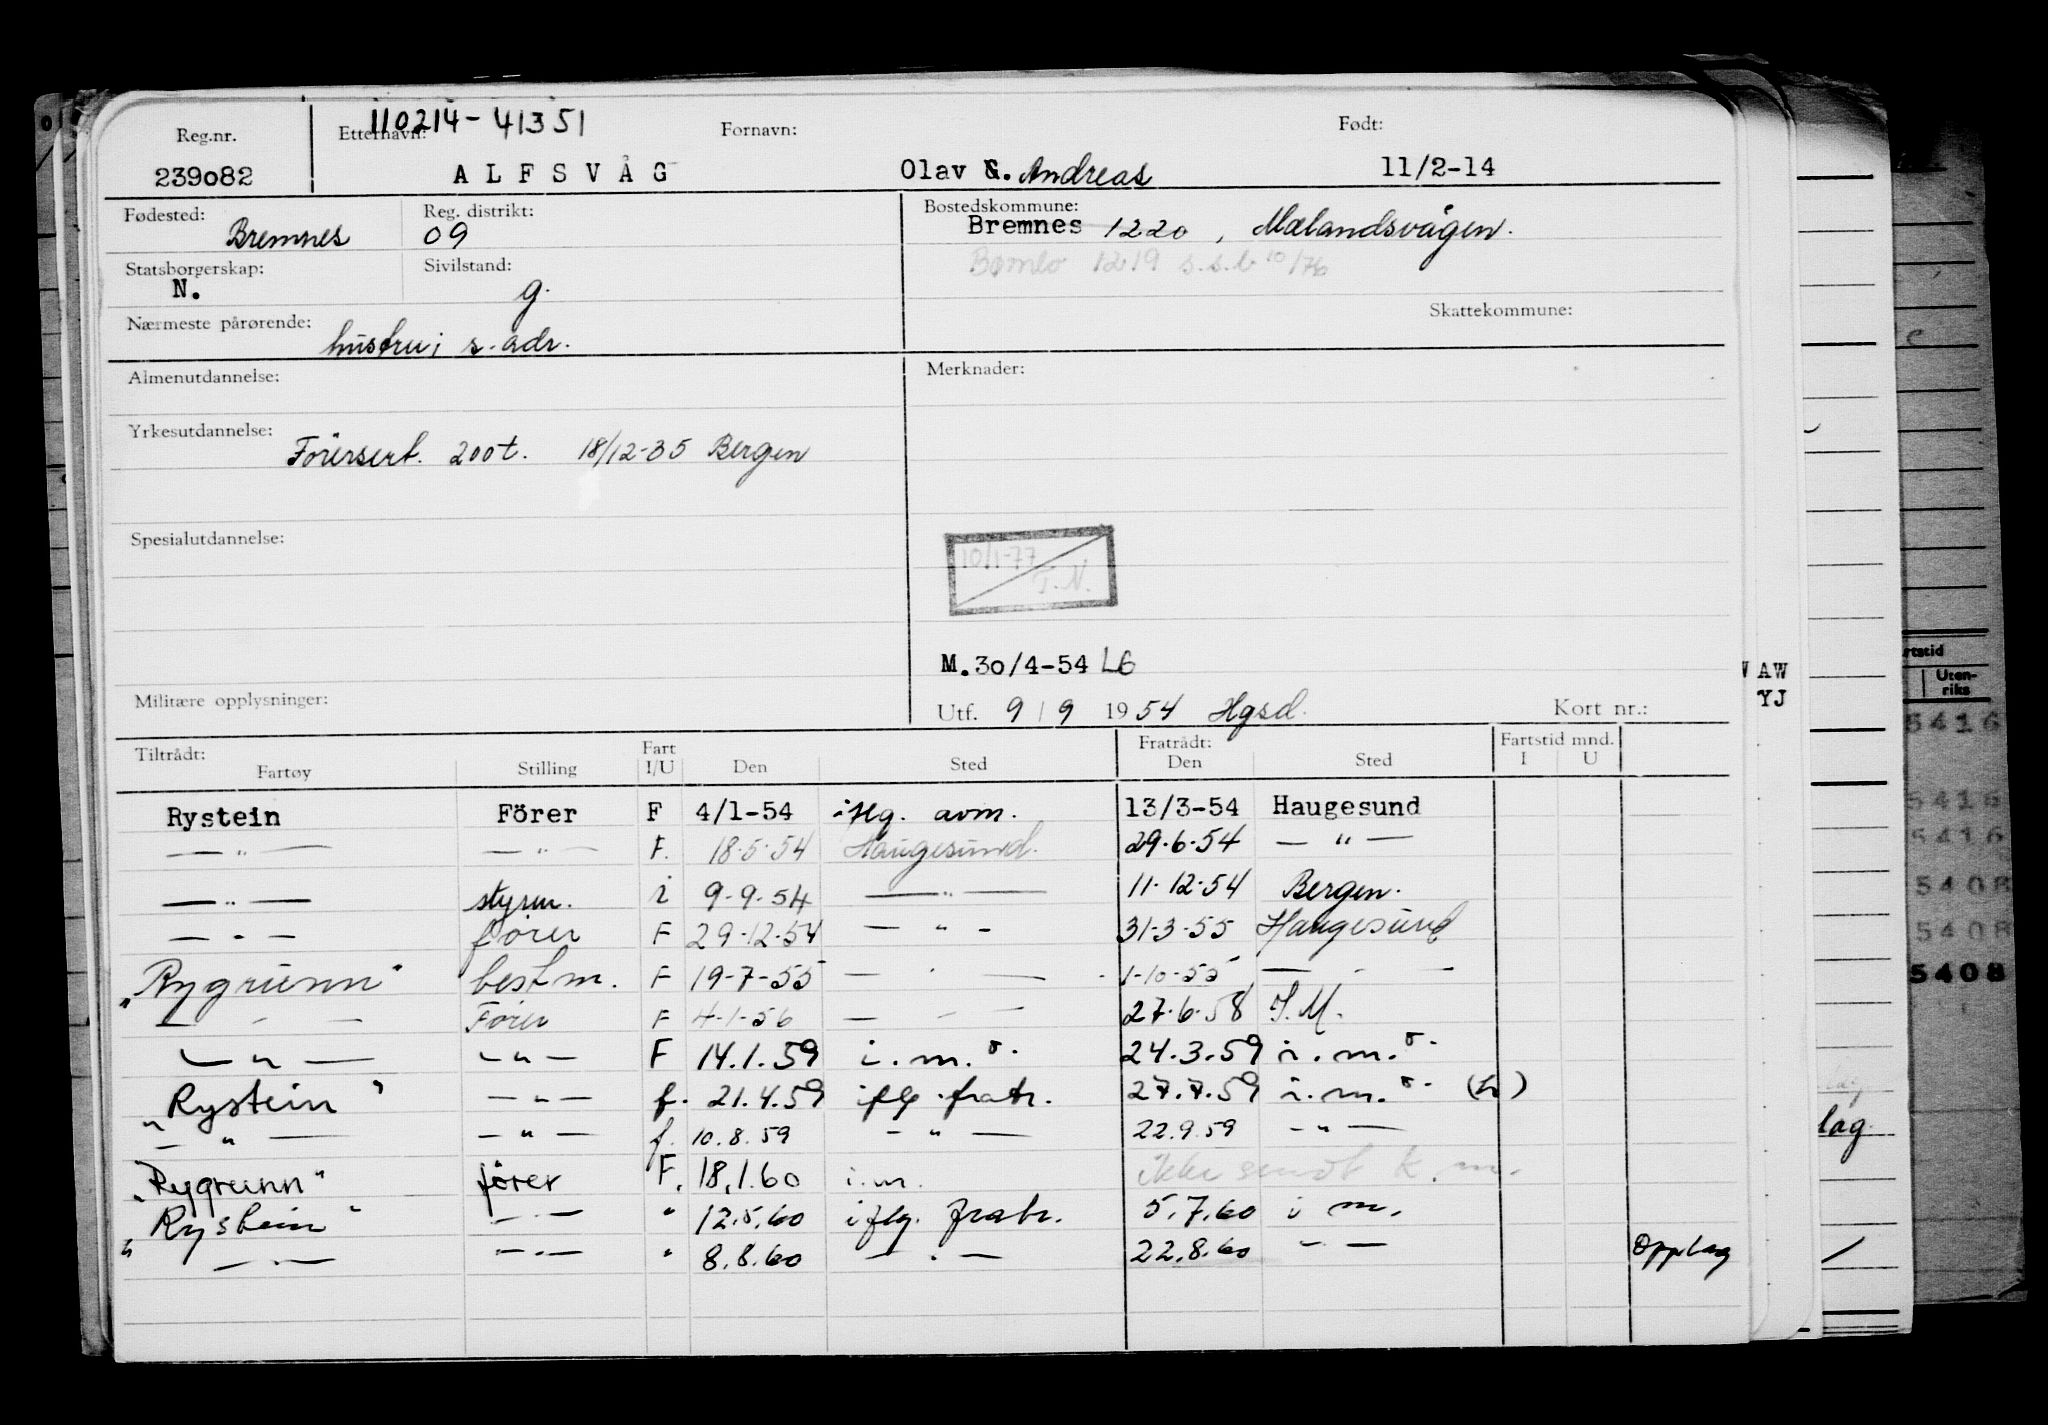 110214-41351
Reg.nr. Etternavn: Fornavn: Født:
239082 ALFSVÅG Olav G. Andreas 11/2-14
Fødested: Reg. distrikt: Bostedskommune:
Bremnes 09 Bremnes 1220, Mælandsvågen.
Statsborgerskap: Sivilstand: Bømlo 1219 s.s.b 10/76
N. g.
Nærmeste pårørende: Skattekommune:
hustru; s. adr.
Almenutdannelse: Merknader:
Yrkesutdannelse:
Förersert. 200t. 18/12-35 Bergen
Spesialutdannelse:
10/1-77
T.N.
M.30/4-54 LG
Militære opplysninger: Utf. 9/9 1954 Hgsd. Kort nr.:
Tiltrådt: Fart Fratrådt: Fartstid mnd.
Fartøy Stilling I/U Den Sted Den Sted I U
Rystein Förer F 4/1-54 iflg. avm. 13/3-54 Haugesund
— " — — " — F. 18.5.54 Haugesund. 29.6.54 — " —
— " — styrm. i 9-9-54 — " — 11.12.54 Bergen.
— " — fører F 29-12-54 — " — 31-3-55 Haugesund
"Rygrunn" bestm. F 19-7-55 — " — 1-10-55 — " —
— " — Fører F 4-1-56 — " — 27.6.58 I.M.
— " — — " — F 14.1.59 i.m.o. 24.3.59 i.m.o.
"Rystein" — " — f. 21.4.59 iflg. fratr. 27.7.59 i.m.o.
— " — — " — f. 10.8.59 — " — 22.9.59 — " —
"Rygrunn" fører F. 18.1.60 i.m. ikke sendt k.m.
"Rystein" — " — " 12.5.60 iflg. fratr. 5.7.60 i m.
— " — — " — " 8.8.60 — " — 22.8.60 — " — Opplag
AW
YJ
Uten-
riks
5416
5416
5416
5408
5408
5408
lag